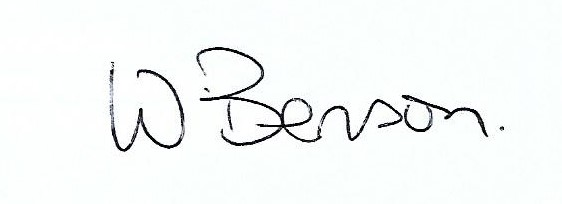 W Benson.